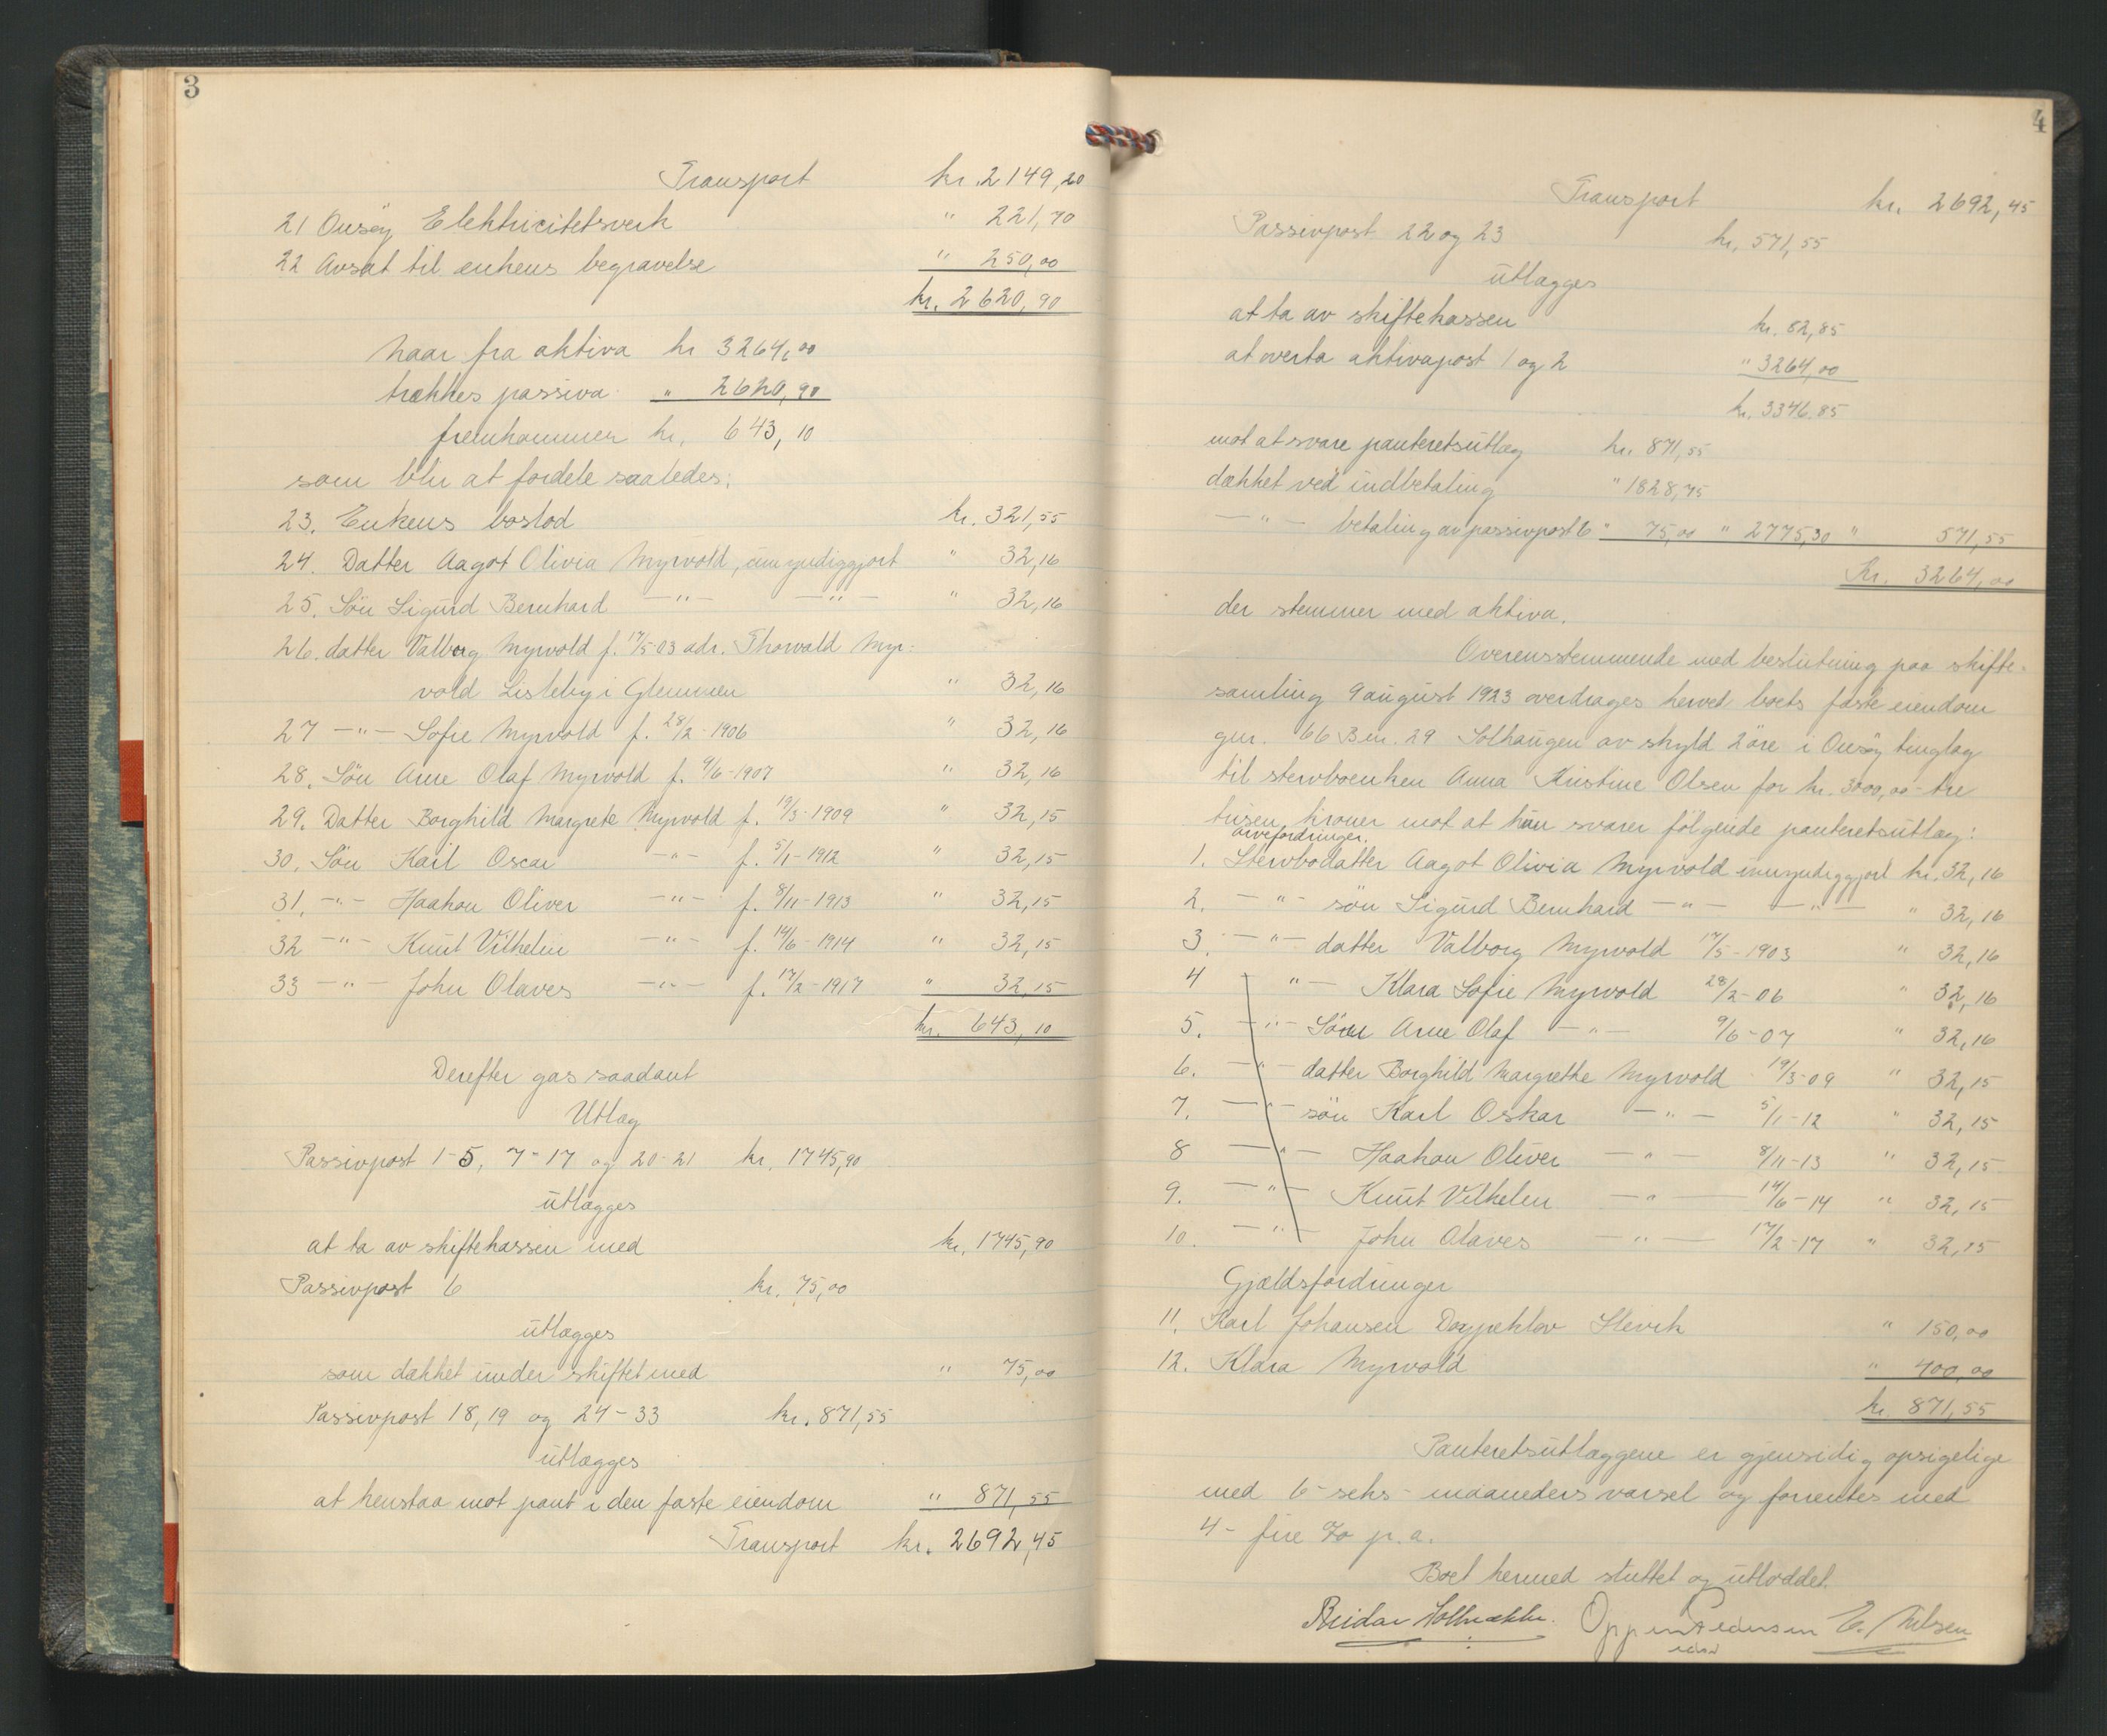 3
Transport kr. 2149,20
21 Onsøy Elektricitetsverk " 221,70
22 Avsat til enkens begravelse " 250,00
kr. 2620,90
Naar fra aktiva kr 3264,00
trækkes passiva " 2620,90
fremkommer kr. 643,10
som blir at fordele saaledes:
23. Enkens boslod kr. 321,55
24. Datter Aagot Olivia Myrvold, umyndiggjort " 32,16
25. Søn Sigurd Bernhard —"— —"— " 32,16
26. datter Valborg Myrvold f. 17/5-03 adr. Thorvald Myr-
vold Lisleby i Glemmen " 32,16
27 —"— Sofie Myrvold f. 28/2-1906 " 32,16
28. Søn Arne Olaf Myrvold f. 9/6-1907 " 32,16
29. Datter Borghild Margrete Myrvold f. 19/3-1909 " 32,15
30. Søn Karl Oscar —"— f. 5/1-1912 " 32,15
31. —"— Haakon Oliver —"— f. 8/11-1913 " 32,15
32 —"— Knut Vilhelm —"— f. 14/6-1914 " 32,15
33 —"— John Olaves —"— f. 17/2-1917 " 32,15
kr. 643,10
Derefter gas saadant
Utlæg
Passivpost 1-5, 7-17 og 20-21 kr. 1745,90
utlægges
at ta av skiftekassen med kr. 1745,90
Passivpost 6 kr. 75,00
utlægges
som dækket under skiftet med " 75,00
Passivpost 18, 19 og 24-33 kr. 871,55
utlægges
at henstaa mot pant i den faste eiendom " 871,55
Transport kr. 2692,45
4
Transport kr. 2692,45
Passivpost 22 og 23 kr. 571,55
utlægges
at ta av skiftekassen kr. 82,85
at overta aktivapost 1 og 2 " 3264,00
kr. 3346,85
mot at svare panteretsutlæg kr. 871,55
dækket ved indbetaling " 1828,75
—"— betaling av passivpost 6 " 75,00 " 2775,30 " 571,55
Kr. 3264,00
der stemmer med aktiva.
Overensstemmende med beslutning paa skifte-
samling 9 august 1923 overdrages herved boets faste eiendom
gnr. 66 Bnr. 29 Solhaugen av skyld 2 øre i Onsøy tinglag
til stervboenken Anna Kristine Olsen for kr. 3000,00 - tre
tusen kroner mot at hun svarer følgende panteretsutlæg:
arvefordringer.
1. Stervbodatter Aagot Olivia Myrvold umyndiggjort kr. 32,16
2. —"— søn Sigurd Bernhard —"— —"— " 32,16
3. —"— datter Valborg Myrvold 17/5-1903 " 32,16
4 "— Klara Sofie Myrvold 28/2-06 " 32,16
5. —"— Søn Arne Olaf —"— 9/6-07 " 32,16
6. —"— datter Borghild Margrethe Myrvold 19/3-09 " 32,15
7. —"— søn Karl Oskar —"— 5/1-12 " 32,15
8 —"— Haakon Oliver —"— 8/11-13 " 32,15
9. —"— Knut Vilhelm —"— 14/6-14 " 32,15
10. —"— John Olaves —"— 17/2-17 " 32,15
Gjældsfordringer
11. Karl Johansen Slevik " 150,00
12. Klara Myrvold " 400,00
kr. 871,55
Panteretsutlæggene er gjensidig opsigelige
med 6 - seks - maaneders varsel og forrentes med
4 - fire % p.a.
Boet hermed sluttet og utloddet.
Reidar E. Nilsen